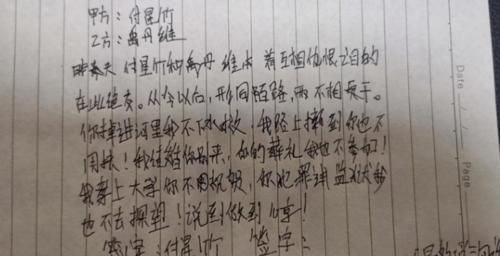 甲方：付星竹
乙方：禹丹维
昨天 付星竹和禹丹维本着互相仇恨之目的
在此绝交。从今以后，形同陌路，两不相干。
你掉进河里我不下水救，我路上撞到你也不
用扶！我住给你别开，你的葬礼我也不参加！
我考上大学你不用祝贺，你犯罪进监狱我
也不去探望！说到做到
签字：付星竹 签字：
Date
Page